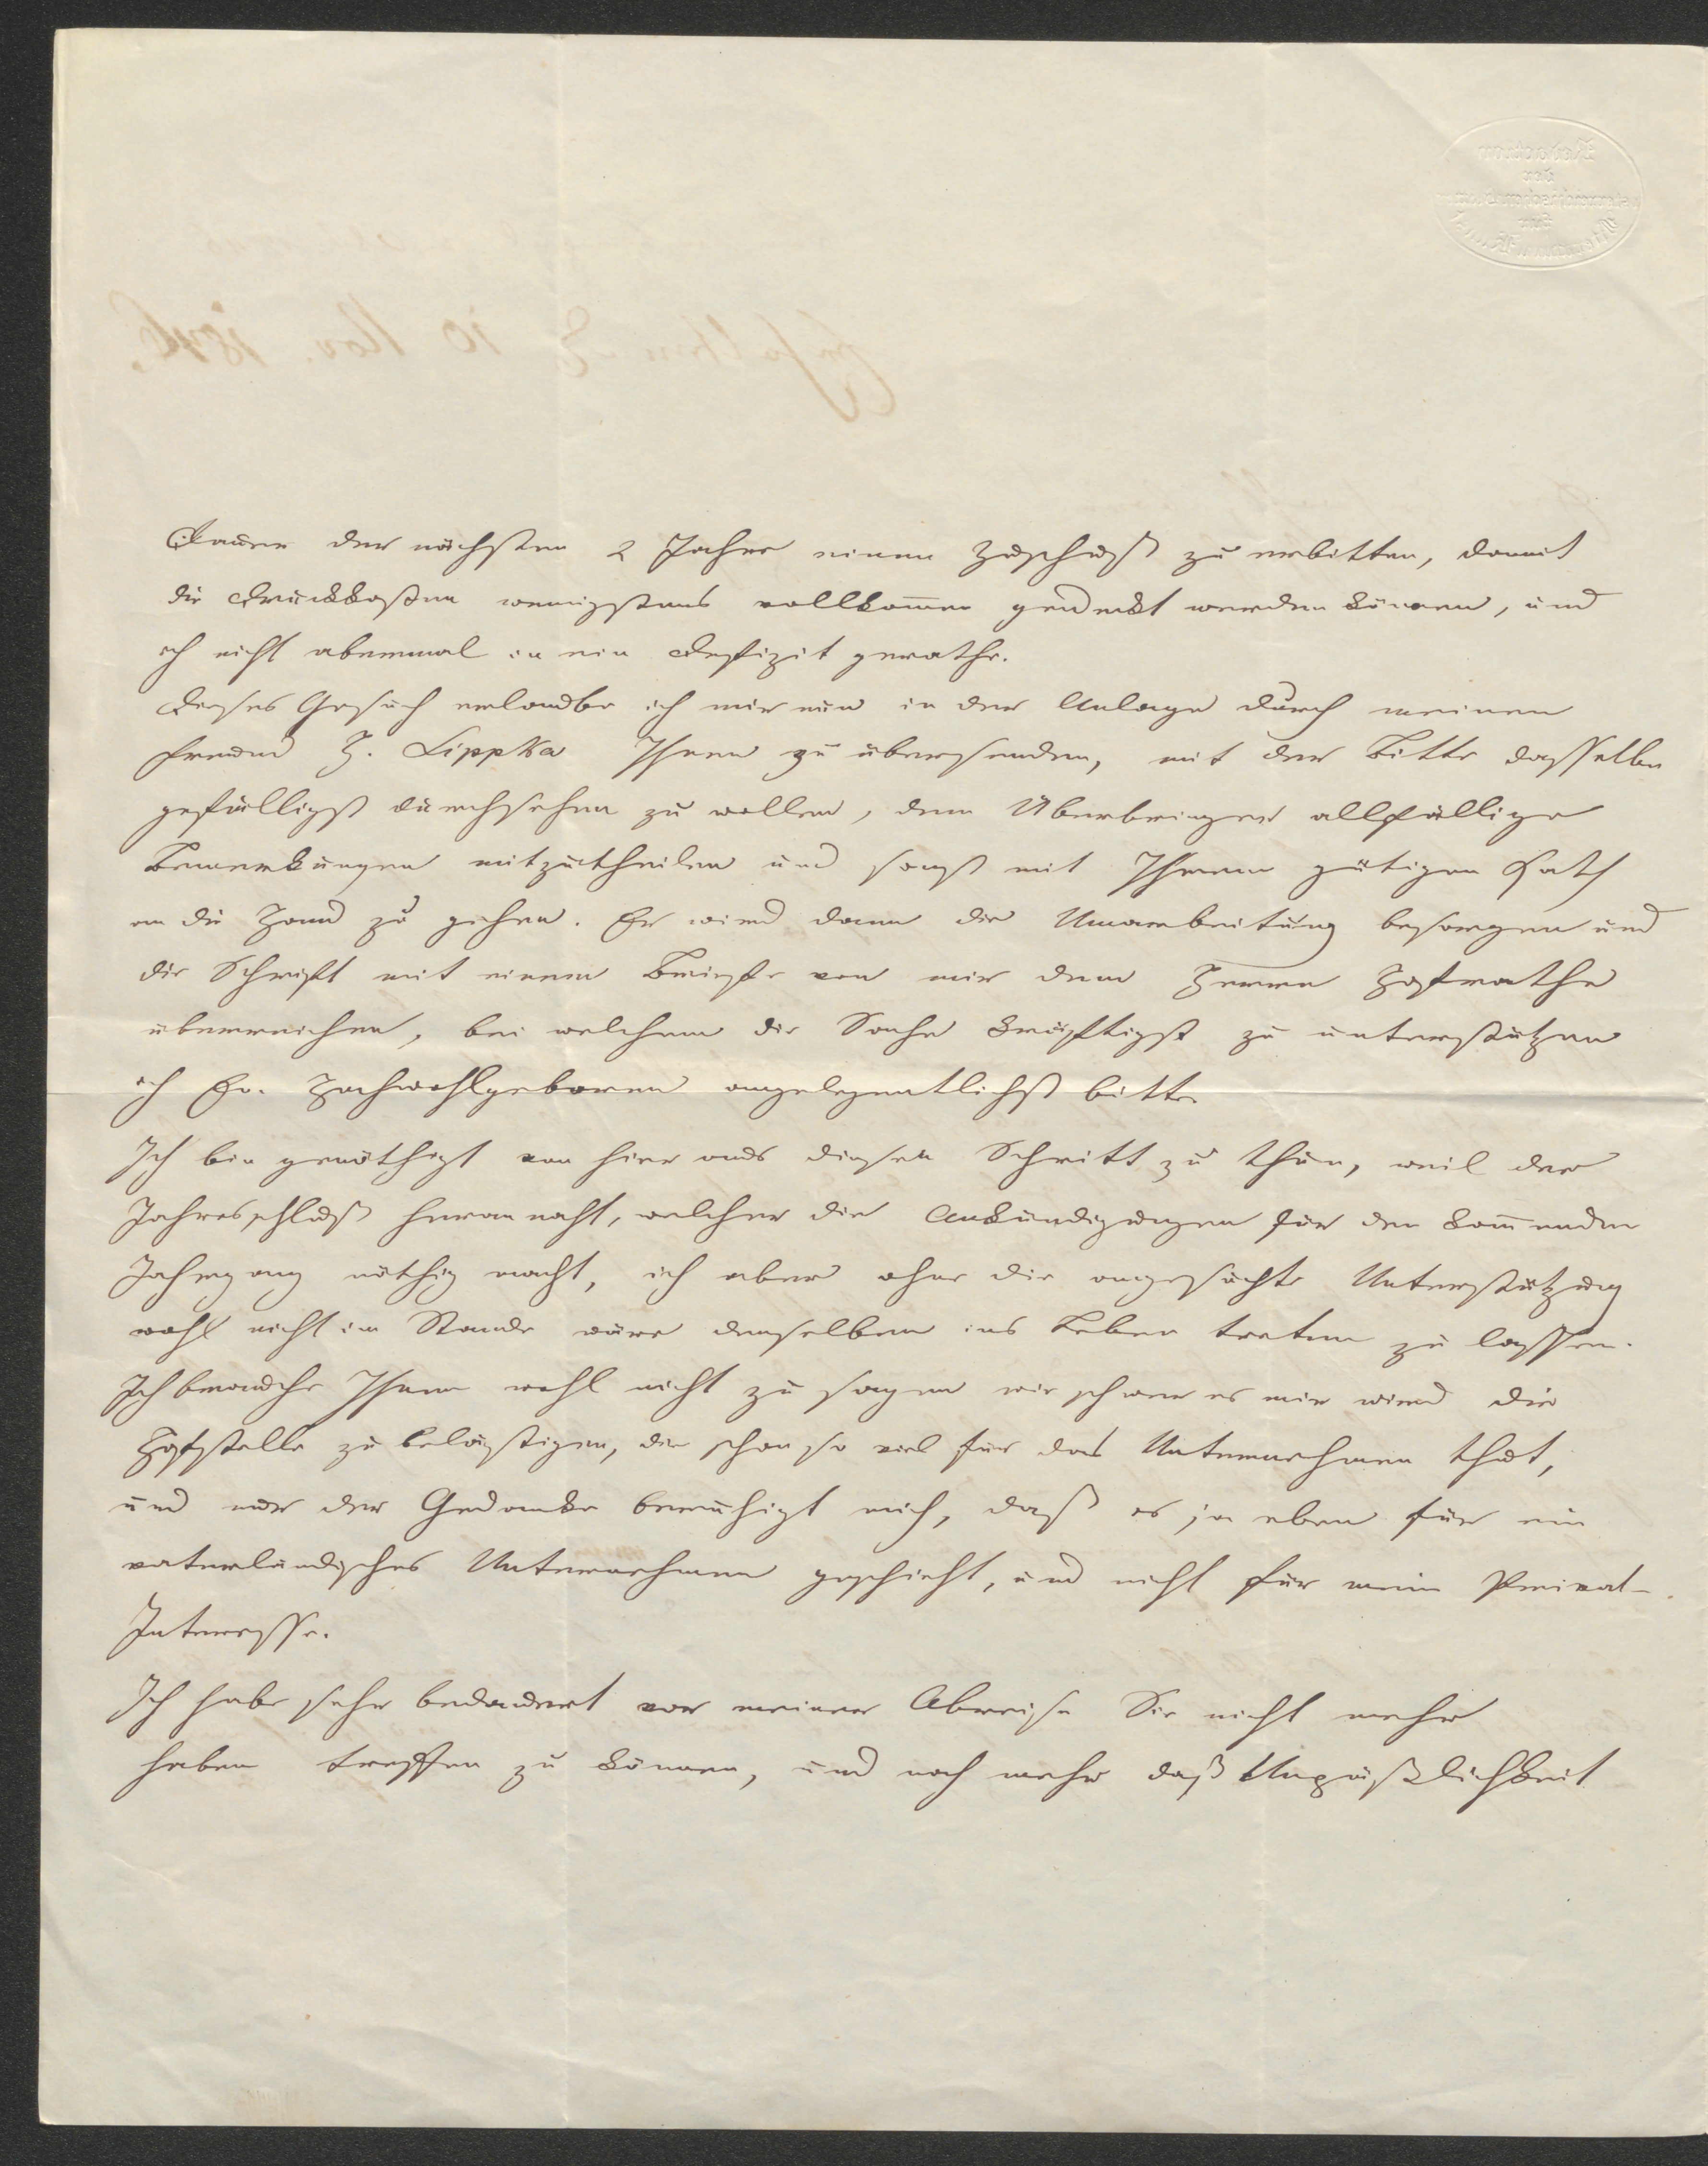 Dauer der nächsten 2 Jahre einen Zuschuß zu erbitten, damit
die Druckkosten wenigstens vollkom̄en gedeckt werden können, und
ich nicht abermal in ein Defizit gerathe.
Dieses Gesuch erlaube ich mir nun in der Anlage durch meinen
Freund H. Lippka Ihnen zu übersenden, mit der Bitte dasselbe
gefälligst durchsehen zu wollen, dem Überbringer allfällige
Bemerkungen mitzutheilen und sonst mit Ihrem gütigen Rath
an die Hand zu gehen. Er wird dann die Umarbeitung besorgen und
die Schrift mit einem Briefe von mir dem Herrn Hofrathe
überreichen, bei welchem die Sache kräftigst zu unterstützen
ich Er. Hochwohlgeboren angelegentlichst bitte.
Ich bin genöthigt von hier aus diesen Schritt zu thun, weil der
Jahresschluß herannaht, welcher die Ankündigungen für den kom̄enden
Jahrgang nöthig macht, ich aber ohne die angesuchte Unterstützung
wohl nicht im Stande wäre denselben ins Leben treten zu lassen.
Ich brauche Ihnen wohl nicht zu sagen wie schwer es mir wird die
Hofstelle zu belästigen, die schon so viel für das Unternehmen that,
und nur der Gedanke beruhigt mich, daß es ja eben für ein
vaterländisches Unternehmen geschieht, und nicht für mein Privat-
Interesse.
Ich habe sehr bedauert vor meiner Abreise Sie nicht mehr
haben treffen zu können, und noch mehr daß Unpäßlichkeit